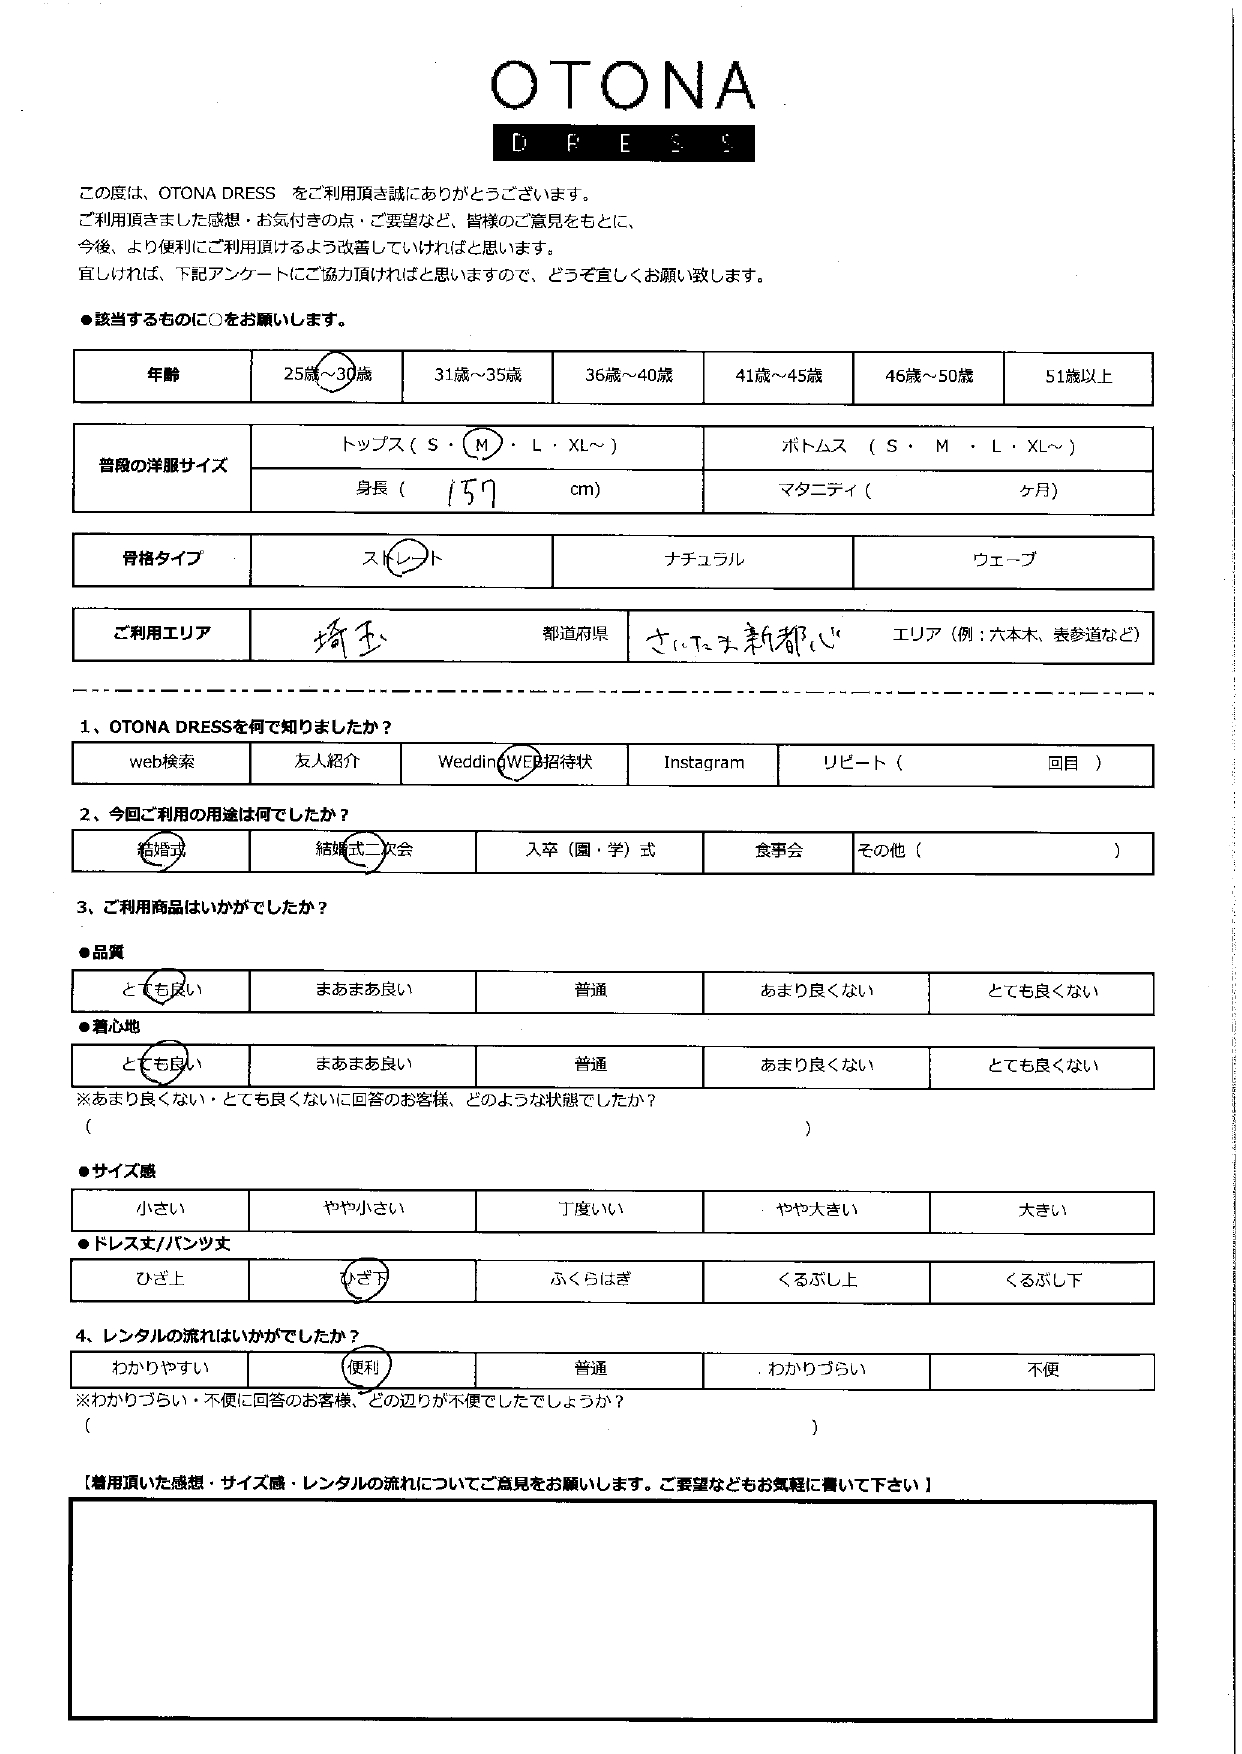 OTONA
DRESS
この度は、OTONA DRESS　をご利用頂き誠にありがとうございます。
ご利用頂きました感想・お気付きの点・ご要望など、皆様のご意見をもとに、
今後、より便利にご利用頂けるよう改善していければと思います。
宜しければ、下記アンケートにご協力頂ければと思いますので、どうぞ宜しくお願い致します。
●該当するものに○をお願いします。
年齢 25歳～30歳 31歳～35歳 36歳～40歳 41歳～45歳 46歳～50歳 51歳以上
普段の洋服サイズ トップス ( S ・ M ・ L ・ XL～ ) ボトムス ( S ・ M ・ L ・ XL～ )
身長 ( 157 cm) マタニティ ( ケ月)
骨格タイプ ストレート ナチュラル ウェーブ
ご利用エリア 埼玉 都道府県 さいたま新都心 エリア（例：六本木、表参道など）
1、OTONA DRESSを何で知りましたか？
web検索 友人紹介 WeddingWEB招待状 Instagram リピート（ 回目 ）
2、今回ご利用の用途は何でしたか？
結婚式 結婚式二次会 入卒（園・学）式 食事会 その他（ ）
3、ご利用商品はいかがでしたか？
●品質
とても良い まあまあ良い 普通 あまり良くない とても良くない
●着心地
とても良い まあまあ良い 普通 あまり良くない とても良くない
※あまり良くない・とても良くないに回答のお客様、どのような状態でしたか？
( )
●サイズ感
小さい やや小さい 丁度いい やや大きい 大きい
●ドレス丈/パンツ丈
ひざ上 ひざ下 ふくらはぎ くるぶし上 くるぶし下
4、レンタルの流れはいかがでしたか？
わかりやすい 便利 普通 わかりづらい 不便
※わかりづらい・不便に回答のお客様、どの辺りが不便でしたでしょうか？
( )
【着用頂いた感想・サイズ感・レンタルの流れについてご意見をお願いします。ご要望などもお気軽に書いて下さい 】